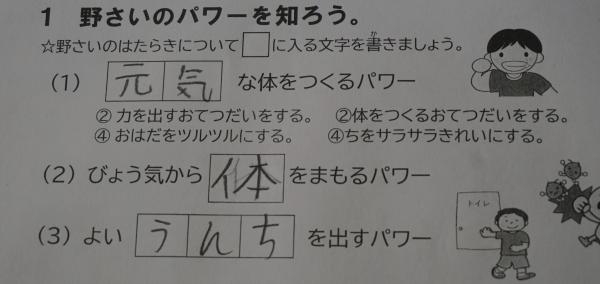 1 野さいのパワーを知ろう。
☆野さいのはたらきについて□に入る文字を書きましょう。
(1) 元気な体をつくるパワー
② 力を出すおてつだいをする。 ②体をつくるおてつだいをする。
④ おはだをツルツルにする。 ④ちをサラサラきれいにする。
(2) びょう気から体をまもるパワー
トイレ
(3) よいうんちを出すパワー